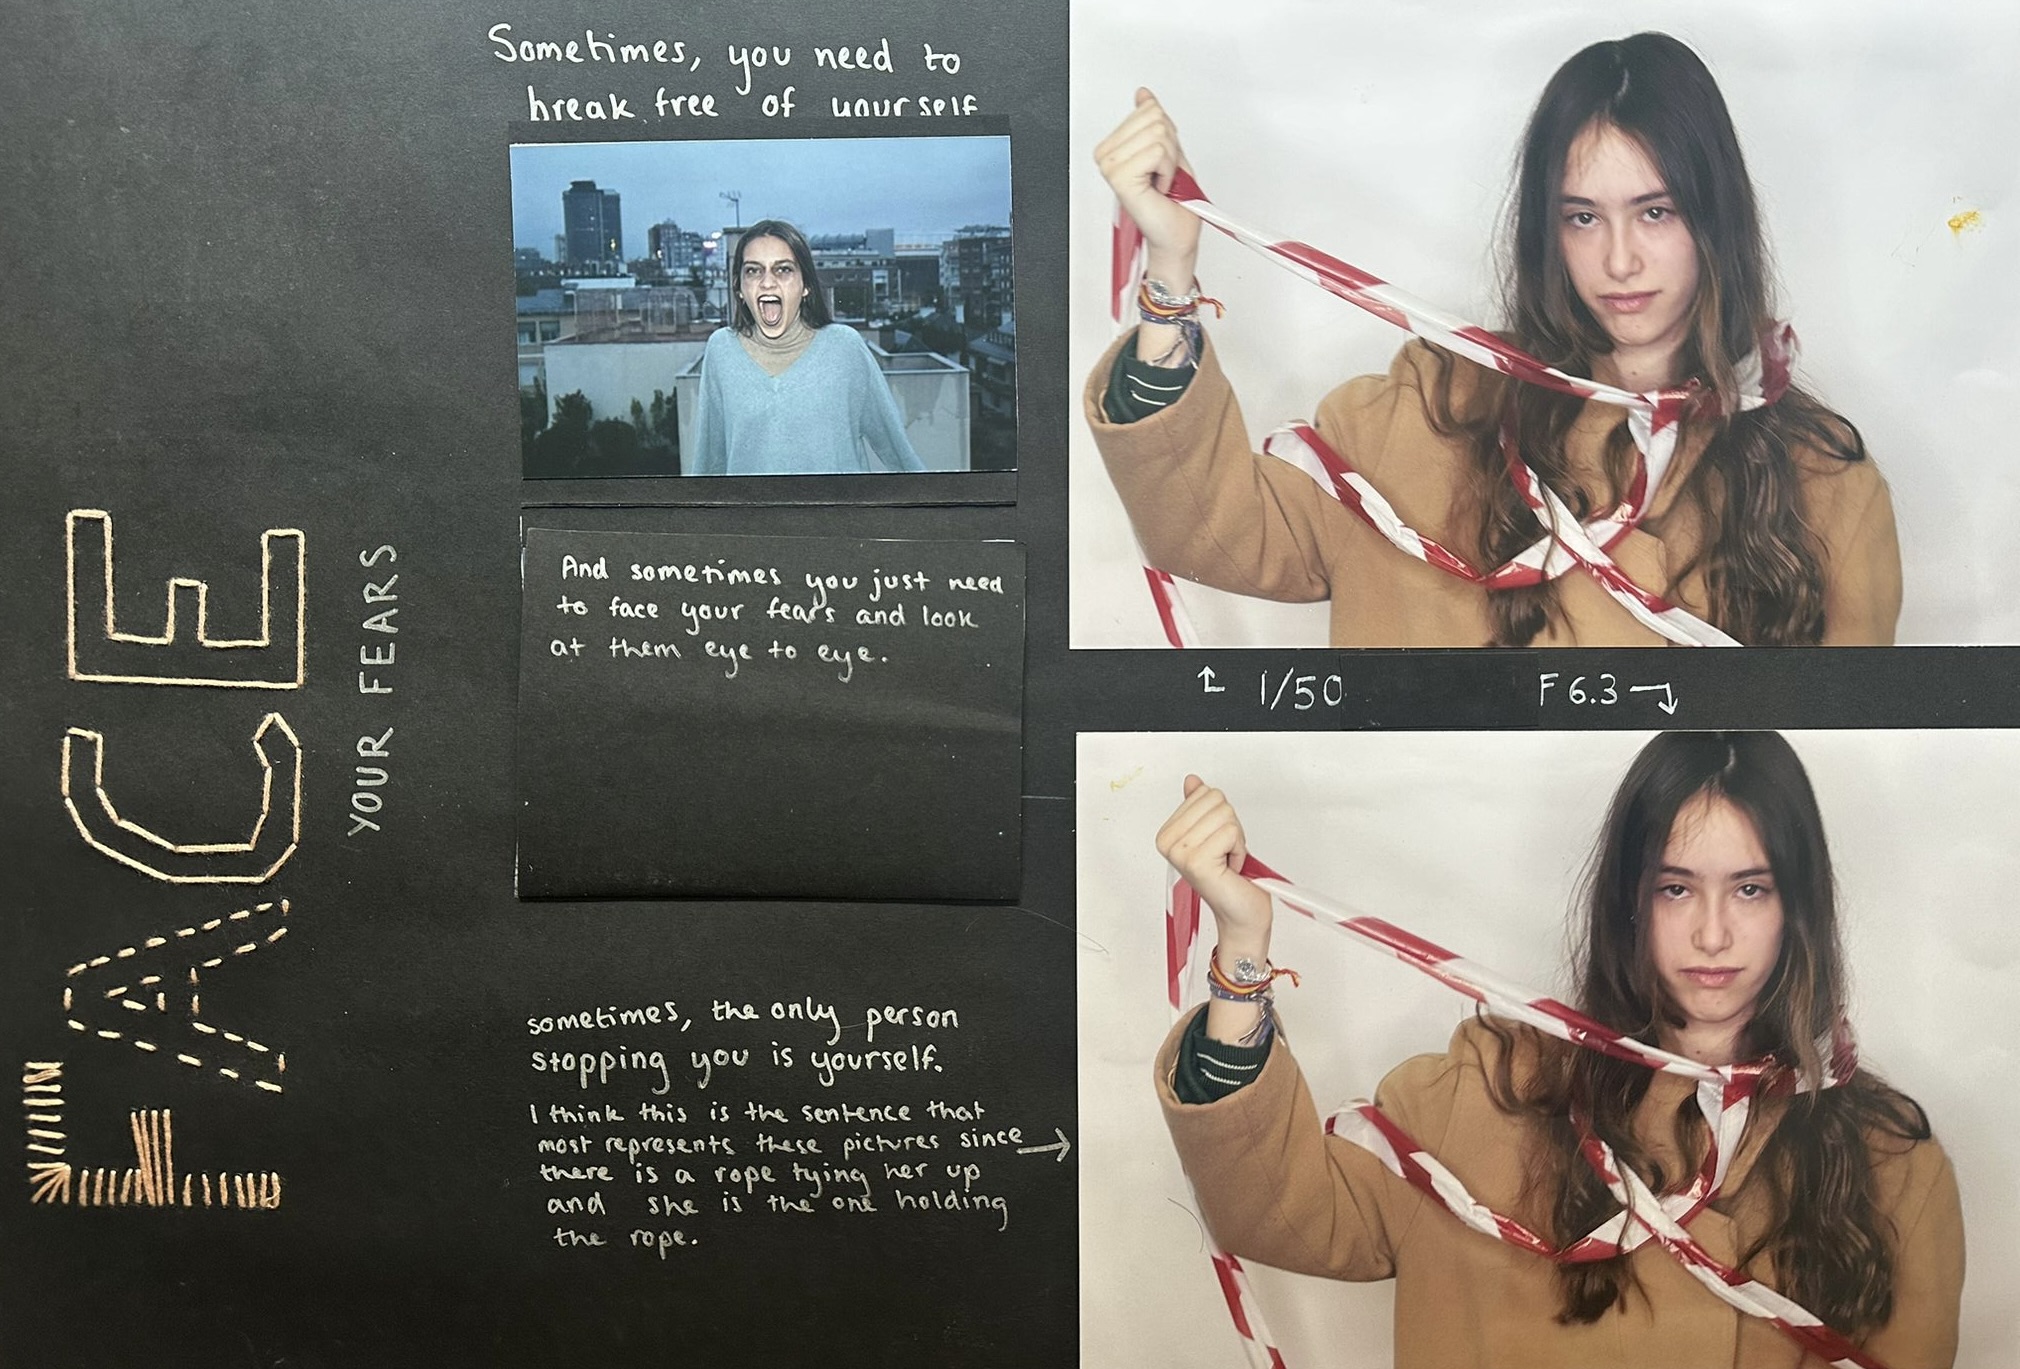 Sometimes, you need to
break free of yourself
FACE
YOUR FEARS
And sometimes you just need
to face your fears and look
at them eye to eye.
1/50 F6.3
sometimes, the only person
stopping you is yourself.
I think this is the sentence that
most represents these pictures since
there is a rope tying her up
and she is the one holding
the rope.